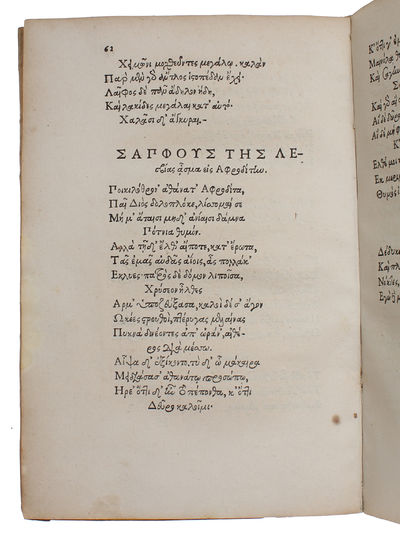 62
Χειμῶνι μοχθεῦντες μεγάλῳ. καλὰν
Παρ μὲν γὸ ἄντλος ἱστοπέδαν ἔχει.
Λαῖφος δὲ πᾶν ἄδηλον ἤδη,
Καὶ λακίδες μεγάλαι κατ' αὐτό.
Χαλᾶσι δ' ἄγκυραι.
ΣΑΠΦΟΥΣ ΤΗΣ ΛΕ-
σβίας ᾆσμα εἰς Αφροδίτην.
Ποικιλόθρον' ἀθάνατ' Αφροδίτα,
Παῖ Διὸς δολοπλόκε, λίσσομαί σε
Μή μ' ἄταισι μηδ' ἀνίαισι δάμνα
Πότνια θυμόν.
Αλλὰ τῇδ' ἔλθ' αἴποτε, κατ' ἔρωτα,
Τᾶς ἐμᾶς αὐδᾶς ἀΐοις, ἇς πολλάκ'
Εκλυες· πατρὸς δὲ δόμον λιποῖσα,
Χρύσεον ἦλθες
Αρμ' ὑποζεύξασα, καλοὶ δέ σ' ἆγον
Ωκέες στρουθοὶ, πτέρυγας μελαίνας
Πυκνὰ δινέοντες ἀπ' ὠρανῶ, αἰθέ-
ρος διὰ μέσσω.
Αἶψα δ' ἐξίκοντο. τὺ δ' ὦ μάκαιρα
Μειδιάσασ' ἀθανάτῳ προσώπῳ,
Ηρε' ὅττι δ' ἦν τὸ πέπονθα, κ' ὅττι
Δεῦρο καλοῖμι·